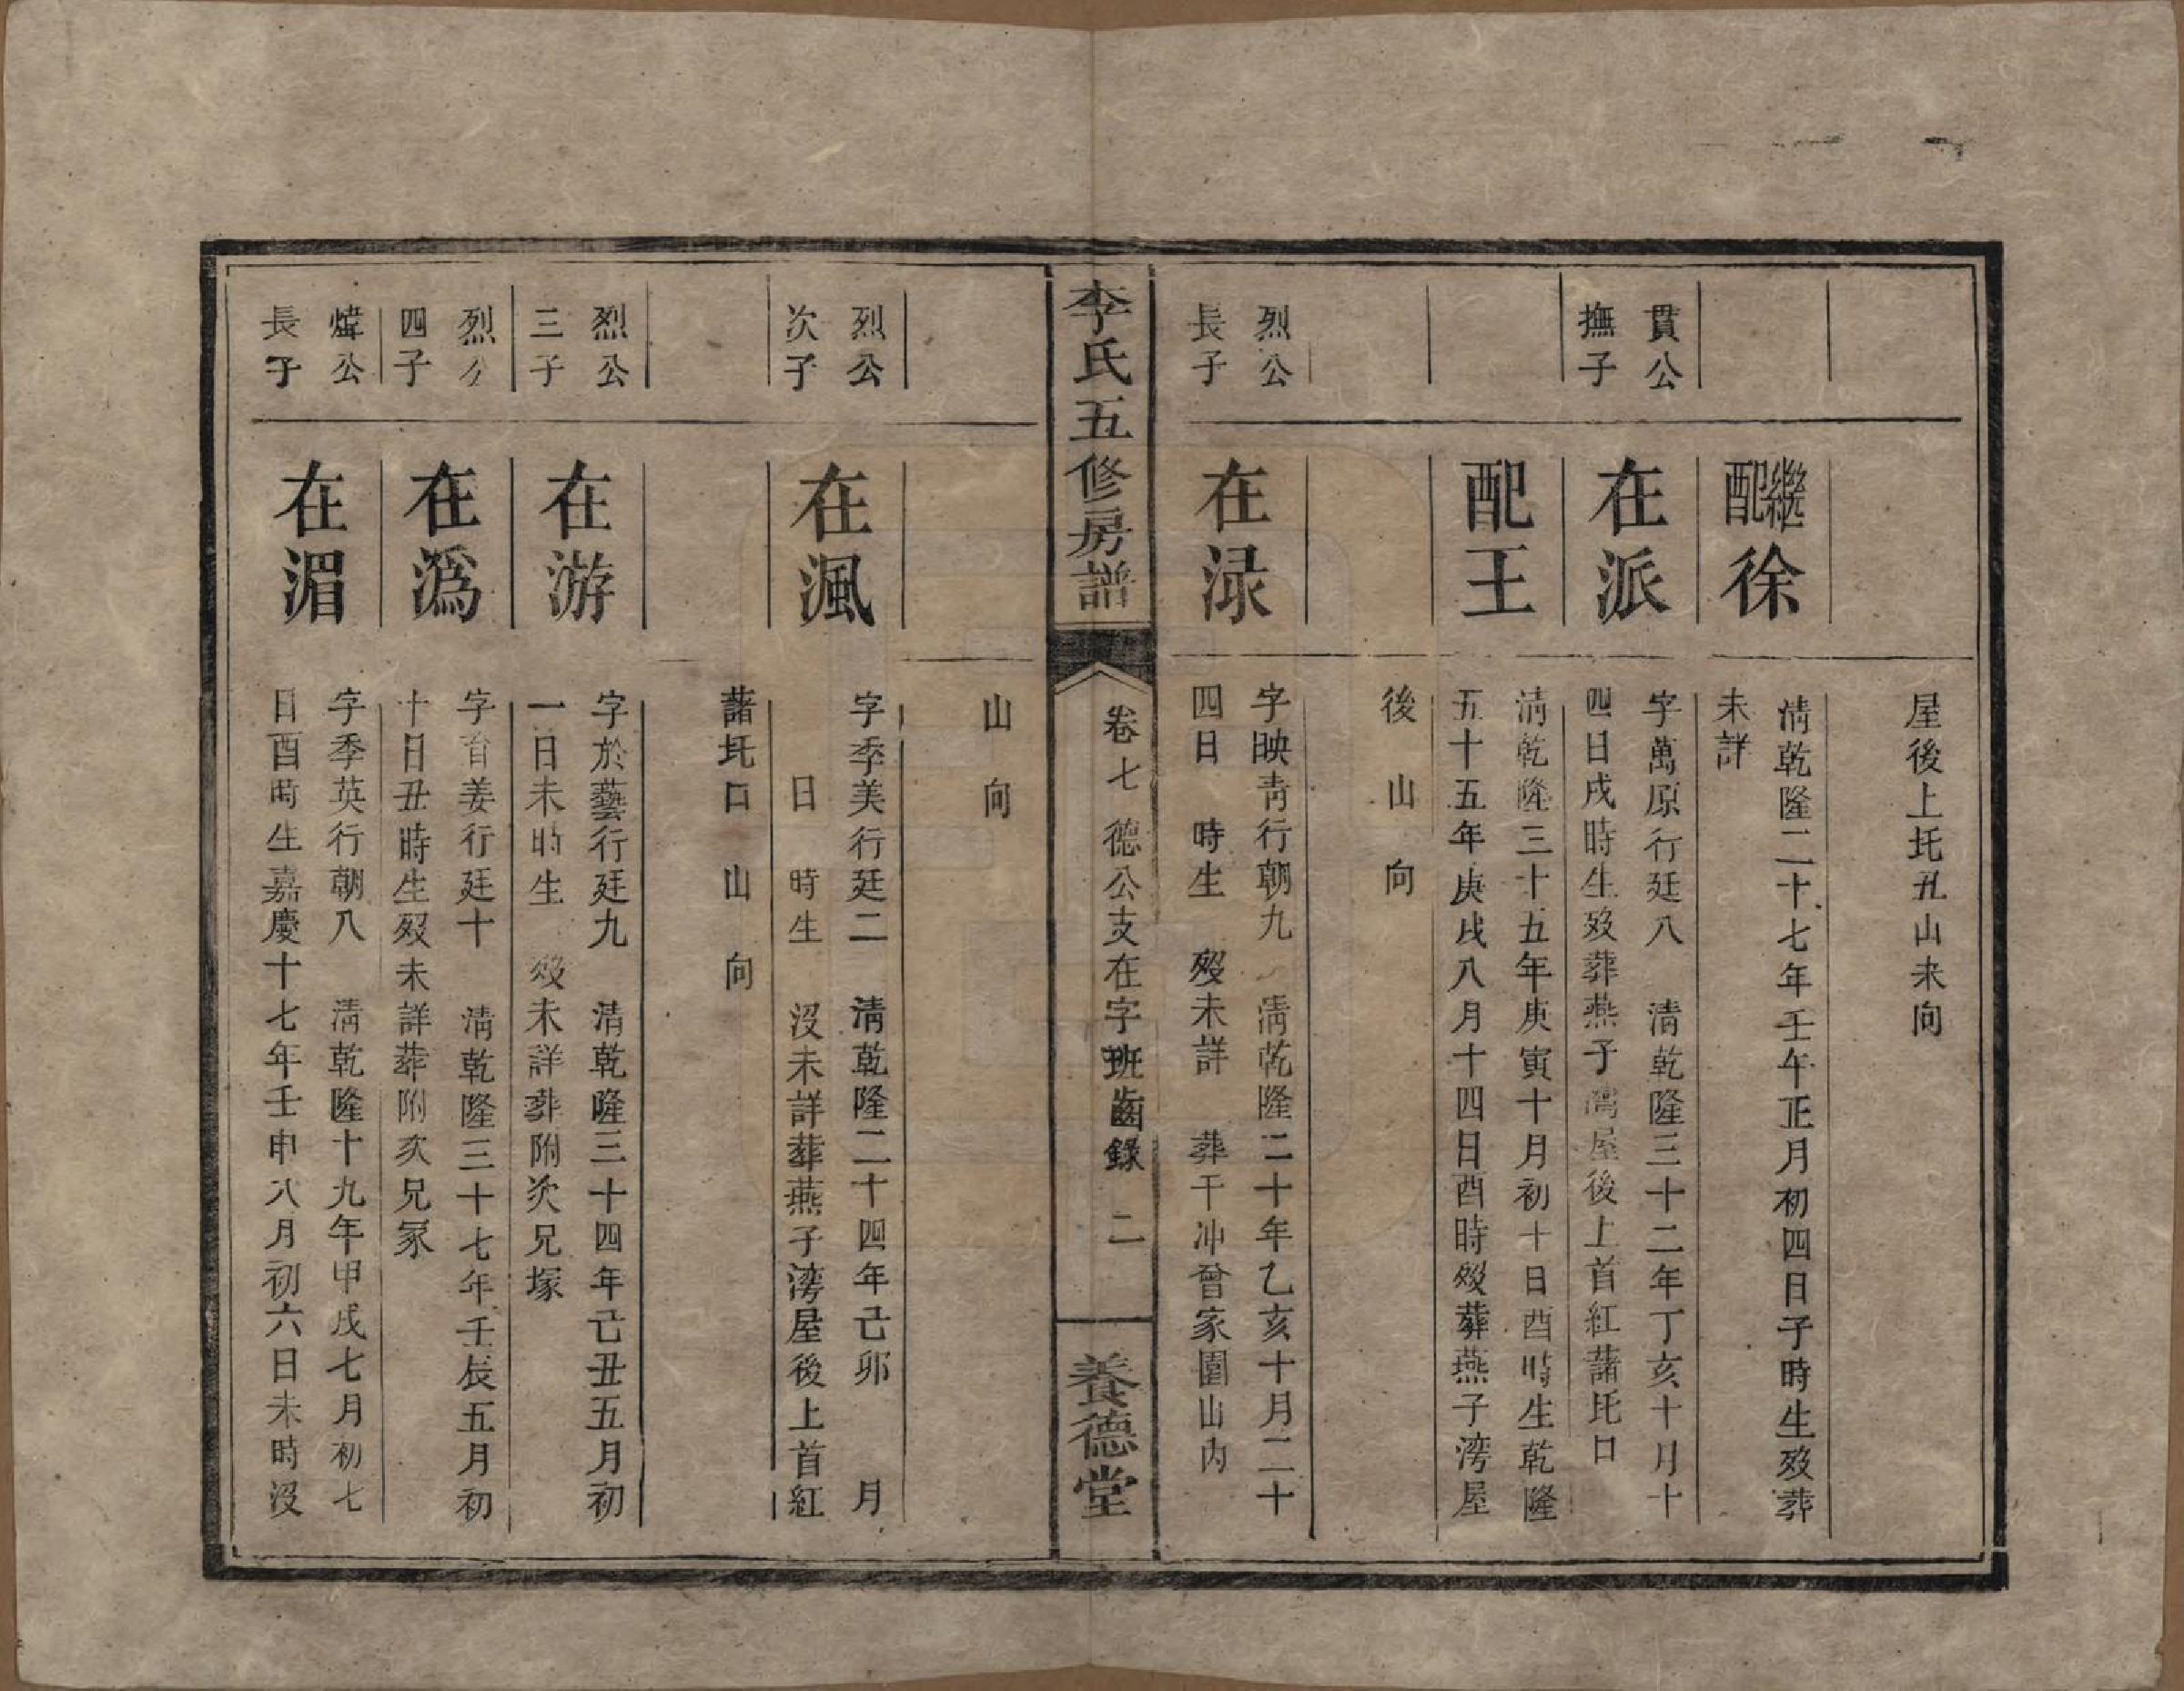 屋後上坵丑山未向
繼配徐
清乾隆二十七年壬午正月初四日子時生歿葬
未詳
貫公
撫子
在派
字萬原行廷八　清乾隆三十二年丁亥十月十
四日戌時生歿葬燕子灣屋後上首紅藷坵口
配王
清乾隆三十五年庚寅十月初十日酉時生乾隆
五十五年庚戌八月十四日酉時歿葬燕子灣屋
後　山　向
烈公
長子
在渌
字映青行朝九　清乾隆二十年乙亥十月二十
四日　時生　歿未詳　葬干冲曾家園山内
李氏五修房譜
卷七　德公支在字班齒錄　二
養德堂
山　向
烈公
次子
在渢
字季美行廷二　清乾隆二十四年己卯　　月
日　時生　沒未詳葬燕子灣屋後上首紅
藷坵口　山　向
烈公
三子
在游
字於藝行廷九　清乾隆三十四年己丑五月初
一日未時生　歿未詳葬附次兄塚
烈公
四子
在溈
字姜行廷十　清乾隆三十七年壬辰五月初
十日丑時生歿未詳葬附次兄冢
煒公
長子
在湄
字季英行朝八　清乾隆十九年甲戌七月初七
日酉時生嘉慶十七年壬申八月初六日未時沒